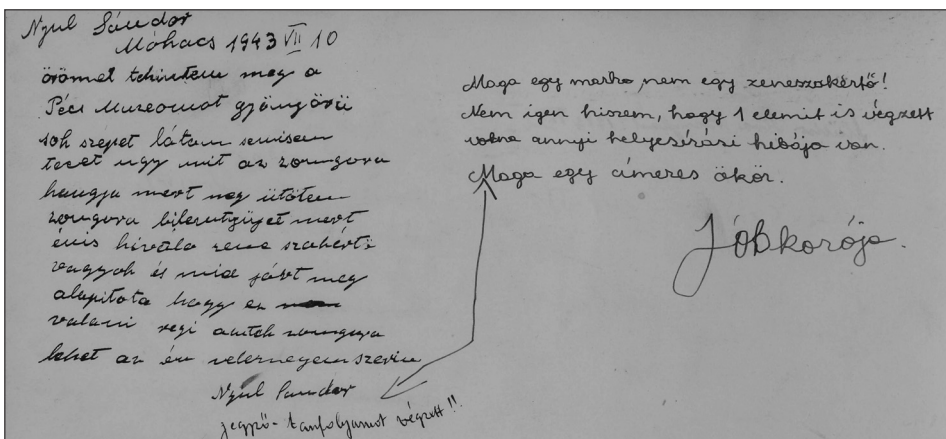 Nyul Sándor
Móhacs 1943 VII 10
örömel tekintem meg a
Péci Muzeomot gyöngörü
sok szépet látam semisem
tecet ugy mit az zongora
hangja mert meg ütötem
zongora bilentyüjet mert
énis hivatla zene szakértö
vagyok és mid járt meg
alapitota hogy ez
valami regi antik zongora
lehet az én velemenyem szerin
Nyul Sandor
jegyző-tanfolyamot végzett!!
Maga egy marha, nem egy zeneszakértő!
Nem igen hiszem, hogy 1 elemit is végzett
volna annyi helyesírási hibája van.
Maga egy címeres ökör.
Jóbkorója.